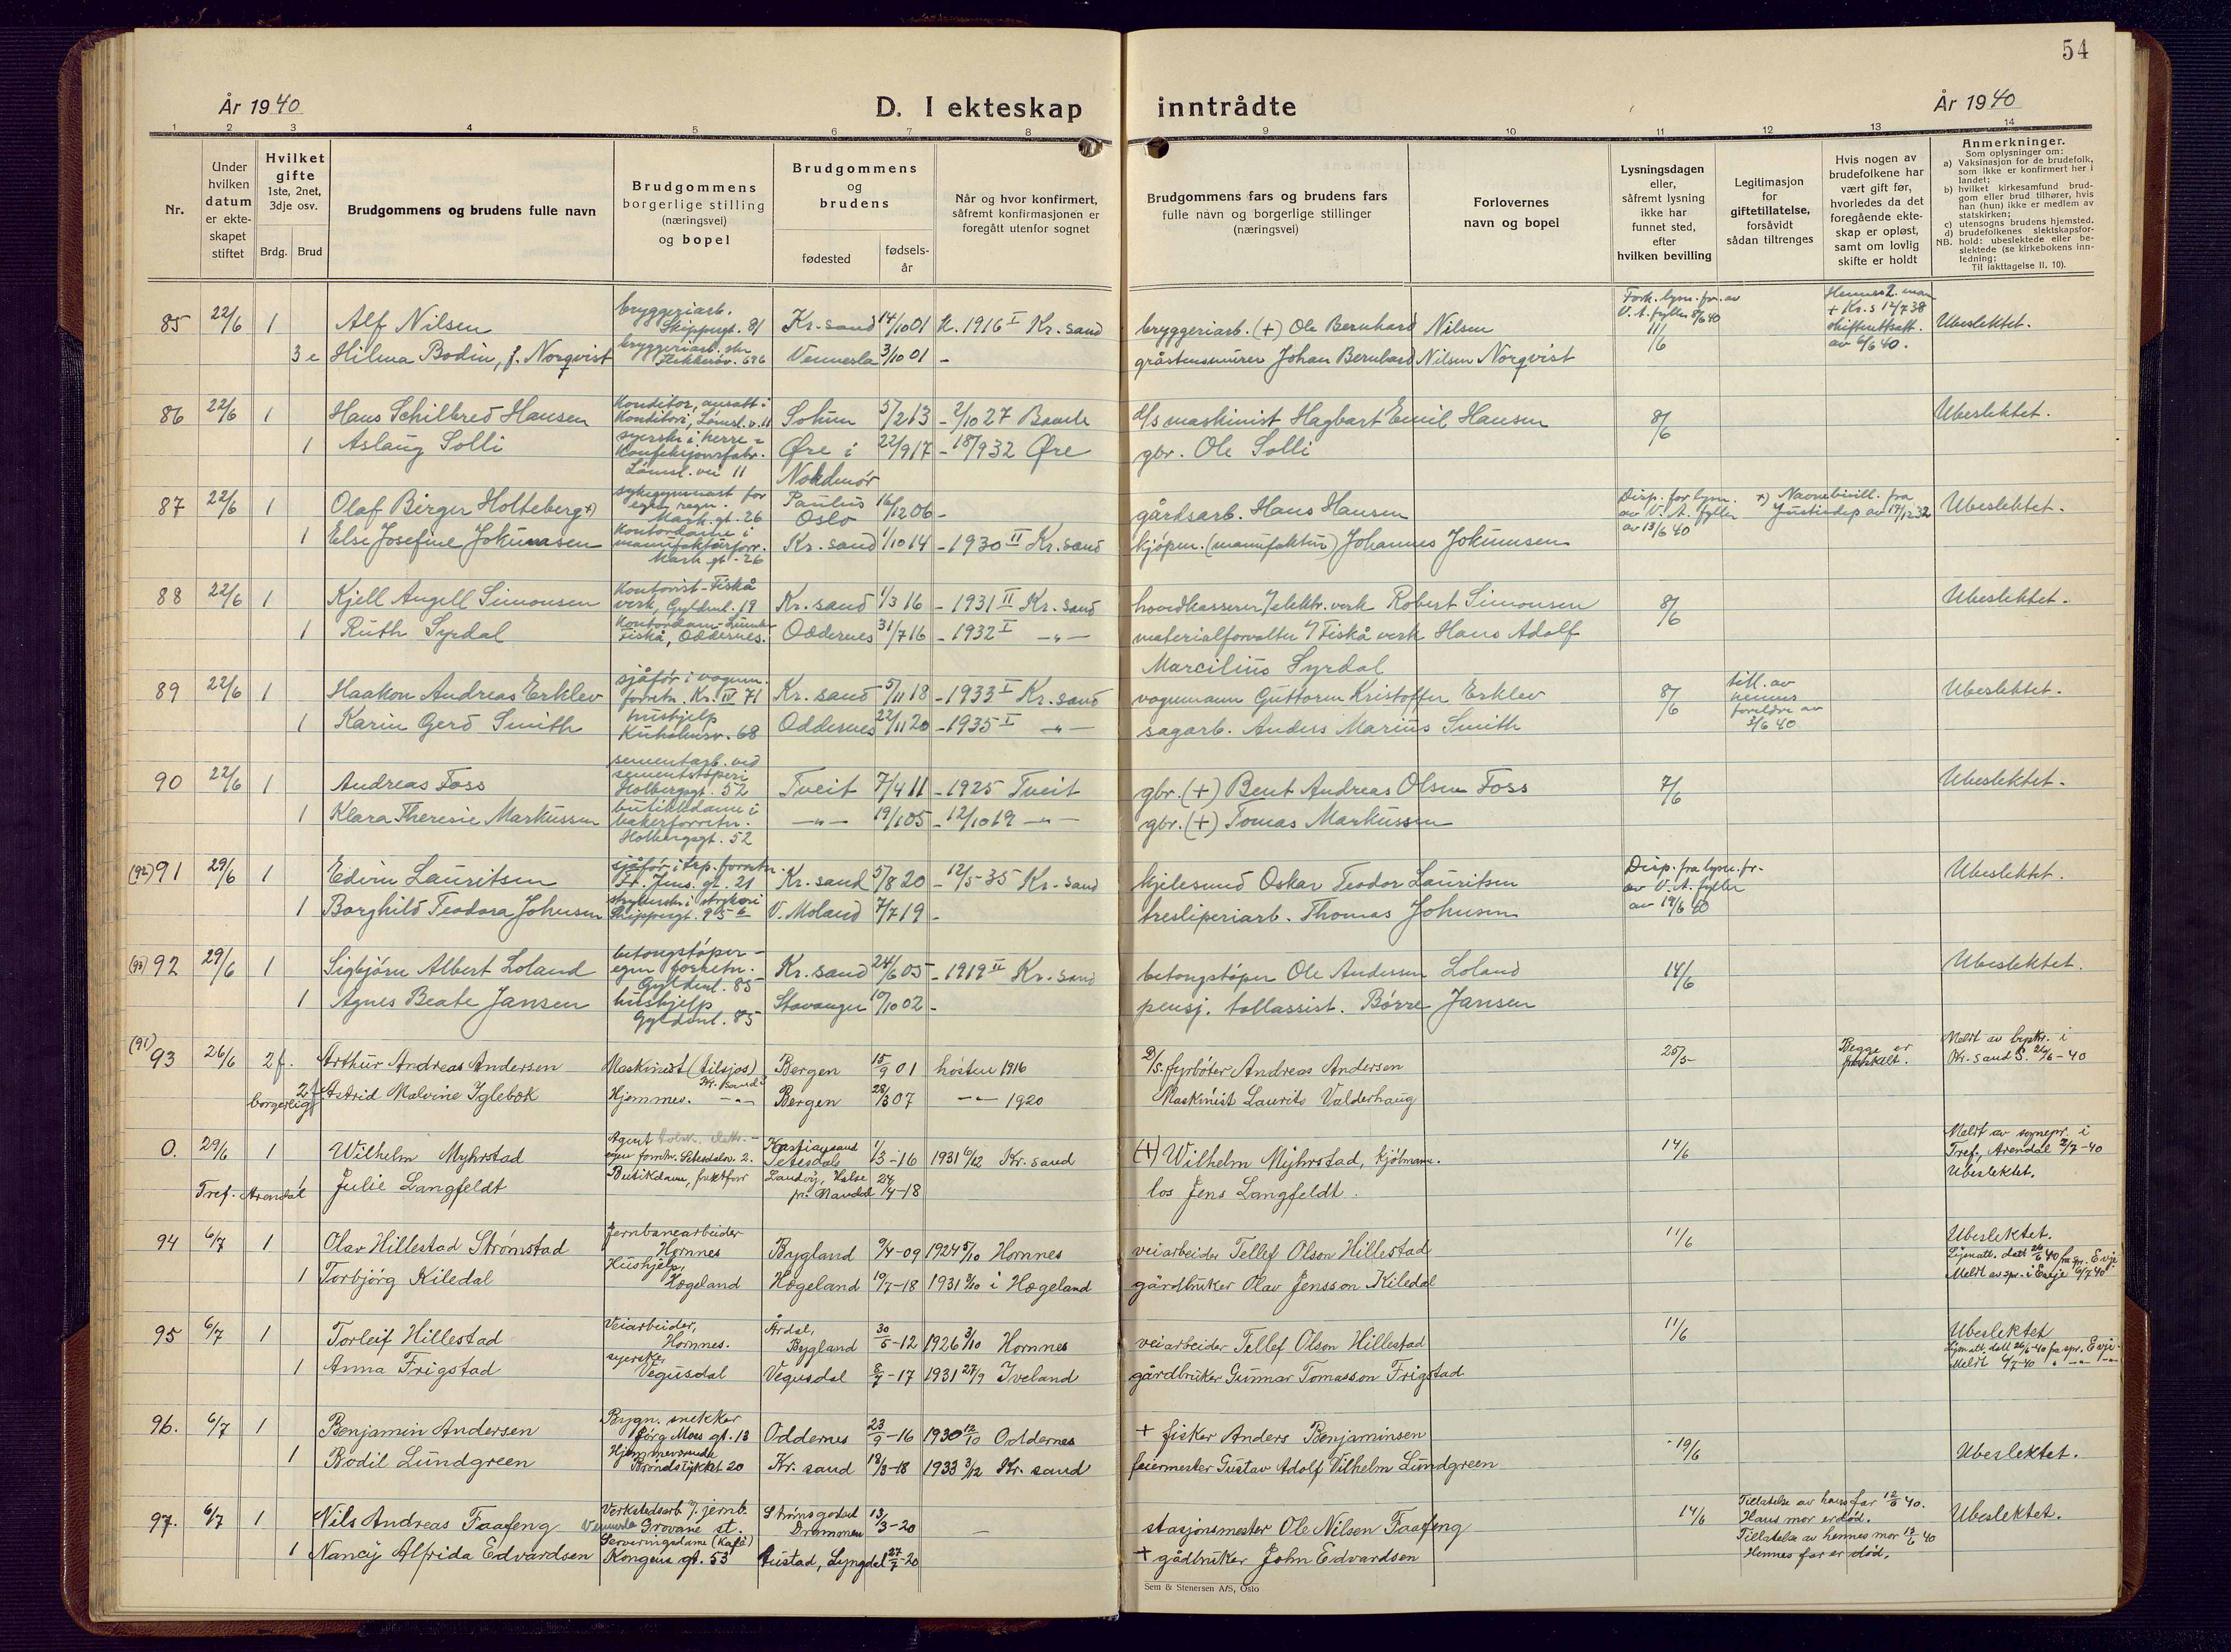 54
År 1940
D. I ekteskap
inntrådte
År 1940
1 2 3 4 5 6 7 8 9 10 11 12 13 14
Nr.
Under hvilken datum er ekteskapet stiftet
Hvilket gifte 1ste, 2net, 3dje osv.
Brdg. Brud
Brudgommens og brudens fulle navn
Brudgommens borgerlige stilling (næringsvei) og bopel
Brudgommens og brudens
fødested
fødsels-år
Når og hvor konfirmert, såfremt konfirmasjonen er foregått utenfor sognet
Brudgommens fars og brudens fars fulle navn og borgerlige stillinger (næringsvei)
Forlovernes navn og bopel
Lysningsdagen eller, såfremt lysning ikke har funnet sted, efter hvilken bevilling
Legitimasjon for giftetillatelse, forsåvidt sådan tiltrenges
Hvis nogen av brudefolkene har vært gift før, hvorledes da det foregående ekteskap er opløst, samt om lovlig skifte er holdt
Anmerkninger.
Som oplysninger om:
a) Vaksinasjon for de brudefolk, som ikke er konfirmert her i landet;
b) hvilket kirkesamfund brudgom eller brud tilhører, hvis han (hun) ikke er medlem av statskirken;
c) utensogns brudens hjemsted.
d) brudefolkenes slektskapsforhold: ubeslektede eller beslektede (se kirkebokens innledning;
NB. Til iakttagelse II, 10).
85 22/6 1 Alf Nilsen bryggeriarb. Skippergt. 81 Kr.sand 14/10 01 K. 1916 I Kr. sand bryggeriarb. (+) Ole Bernhard Nilsen 11/6 Hennes 2. man + Kr.s 12/7 38 skifteattest av 6/6 40. Ubeslektet.
3 e Hilma Bodin, f. Norqvist bryggeriarb.ske Vennesla 3/10 01 - gråstensmurer Johan Bernhard Nilsen Norqvist
86 22/6 1 Hans Schilbred Hansen Konditor, ansatt i Konditori, Lømsl.v. 11 5/2 13 - 2/10 27 d/s maskinist Hagbart Emil Hansen 8/6 Ubeslektet.
1 Aslaug Solli syerske i herre-konfeksjonsfabr. Lømsl. vei 11 Øre i Nordmør 22/9 17 - 18/9 32 Øre gbr. Ole Solli
87 22/6 1 Olaf Birger Holteberg +) sykegymnast for egen regn. Mark. gt. 26 Paulus Oslo 16/12 06 - gårdsarb. Hans Hansen Disp. for lysn. av V. A. fyller av 13/6 40 +) Navnebevill. fra Justisdep av 17/12 32 Ubeslektet.
1 Else Josefine Jokumsen Kontordame i manufakturforr. Mark gt. 26 Kr. sand 1/10 14 - 1930 II Kr. sand kjøpm. (manufaktur) Johannes Jokumsen
88 22/6 1 Kjell Angell Simonsen Kontorist - Fiskå verk, Gyldenl. 19 Kr. sand 1/3 16 - 1931 II Kr. sand hovedkasserer v/ elektr. verk Robert Simonsen 8/6 Ubeslektet.
1 Ruth Syrdal Fiskå, Oddernes. Oddernes 31/7 16 - 1932 I -"- materialforvalter v/ Fiskå verk Hans Adolf
Marcilius Syrdal
89 22/6 1 Haakon Andreas Erklev sjåfør i vognm. forretn. Kr. IV 71 Kr. sand 5/11 18 - 1933 I Kr. sand vognmann Guttorm Kristoffer Erklev 8/6 till. av hennes foreldre av 3/6 40 Ubeslektet.
1 Karin Gerd Smith hushjelp Kuholmsv. 68 Oddernes 22/11 20 - 1935 I -"- sagarb. Anders Marius Smith
90 22/6 1 Andreas Foss sementarb. ved sementstøperi Holbergsgt. 52 Tveit 7/4 11 - 1925 Tveit gbr. (+) Bent Andreas Olsen Foss 7/6 Ubeslektet.
1 Klara Theresie Markussen butikkdame i bakerforretn. Holbergsgt. 52 -"- 19/1 05 - 12/10 19 -"- gbr. (+) Tomas Markussen
(92) 91 29/6 1 Edvin Lauritsen sjåfør i trp. forretn. Fr. Jens. gt. 21 Kr. sand 5/8 20 - 12/5-35 Kr. sand kjelesmed Oskar Teodor Lauritsen Disp. fra lysn. fr. av V. A. fyller av 19/6 40 Ubeslektet.
1 Borghild Teodora Johnsen strykerske i strykeri Skippergt. 95 V. Moland 7/7 19 - tresliperiarb. Thomas Johnsen
(93) 92 29/6 1 Sigbjørn Albert Loland betongstøper - egen forretn. Gyldenl. 85 Kr. sand 24/6 05 - 1919 II Kr. sand betongstøper Ole Andersen Loland 14/6 Ubeslektet.
1 Agnes Beate Jansen hushjelp Gyldenl. 85 Stavanger 10/10 02 - pensj. tollassist. Børre Jansen
(91) 93 26/6 2 f. Arthur Andreas Andersen Maskinist (tilsjøs) Kr. sand S Bergen 15/9 01 høsten 1916 D/S. fyrbøter Andreas Andersen 25/5- Begge er fraskilt. Meldt av byskr. i Kr. sand S. 26/6-40
2 f borgerlig Astrid Malvine Iglebæk Hjemmev. -"- Bergen 28/3 07 -"- 1920 Maskinist Laurits Valderhaug
0. 29/6 1 Wilhelm Myhrstad Agent egen forretn. Setesdalsv. 2. 1/3-16 1931 6/12 Kr. sand (+) Wilhelm Myhrstad, kjøbmann. 14/6 Meldt av sognepr. i Tref., Arendal 2/7-40 Ubeslektet.
Tref. Arendal 1 Julie Langfeldt Butikdame, fruktforr Landøy, Halse pr. Mandal 24/4-18 los Jens Langfeldt.
94 6/7 1 Olav Hillestad Strømstad Jernbanearbeider Hornnes Bygland 9/4-09 1924 5/10 Hornnes veiarbeider Tellef Olson Hillestad 11/6 Ubeslektet. Lysnatt. datt 26/6 40 fra spr. Evje Meldt av spr. i Evje 6/7 40
1 Torbjörg Kiledal Hushjelp, Hægeland Hægeland 10/7-18 1931 i Hægeland gårdbruker Olav Jensson Kiledal
95 6/7 1 Torleif Hillestad Veiarbeider, Hornnes. Årdal, Bygland 30/5-12 1926 3/10 Hornnes veiarbeider Tellef Olson Hillestad 11/6 Ubeslektet Lysn.att. datt 26/6-40 fra spr. Evje. Meldt 6/7-40 " -"- -"-
1 Anna Frigstad syerske Vegusdal Vegusdal 8/7-17 1931 27/9 Iveland gårdbruker Gunnar Tomasson Frigstad
96. 6/7 1 Benjamin Andersen Bygn. snekker Jörg Moes gt. 13 Oddernes 23/9-16 1930 12/10 Oddernes + fisker Anders Benjaminsen 19/6 Ubeslektet.
1 Bodil Lundgreen Hjemmeværende Brøndstykket 20 Kr. sand 18/3-18 1933 3/12 Kr. sand feiermester Gustav Adolf Vilhelm Lundgreen
97. 6/7 1 Nils Andreas Faafeng Verkstedsarb v/ jernb. Vennesla Grovane st. Strømsgodset Drammen 13/3-20 - stasjonsmester Ole Nilsen Faafeng 14/6 Tillatelse av hans far 12/6 40. Hans mor er død. Tillatelse av hennes mor 13/6 40 Hennes far er død. Ubeslektet.
1 Nancy Alfrida Edvardsen Serveringsdame (Kafé) Kongens gt. 53 Austad, Lyngdal 27/7-20 + gådbruker John Edvardsen
Sem & Stenersen A/S, Oslo